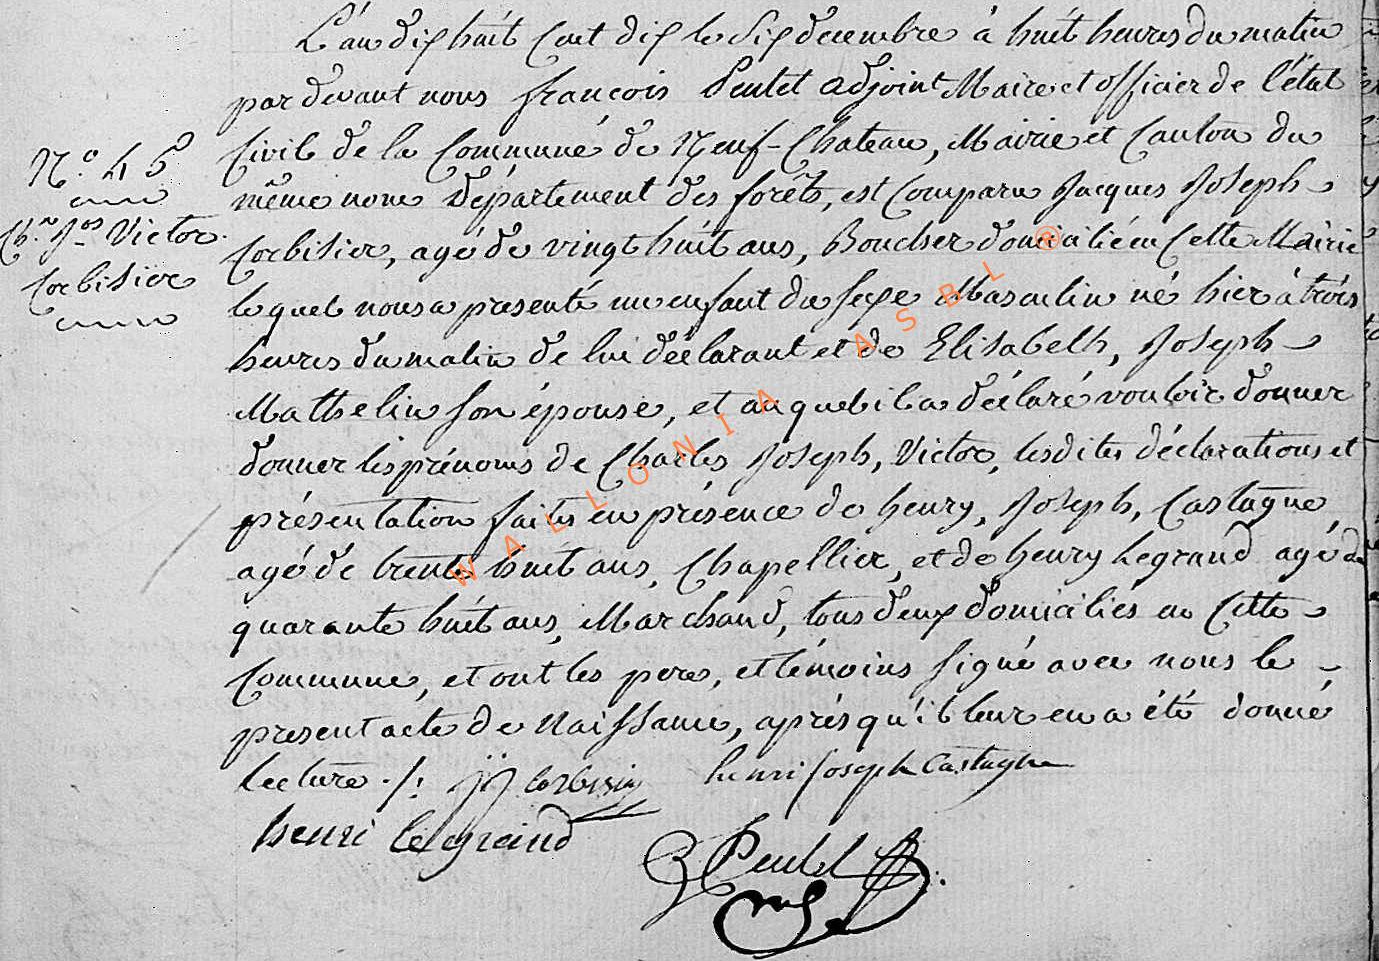 L'an dix huit Cent dix le Six decembre à huit heures du matin
par devant nous françois Pentet adjoint Maire et officier de l'état
N.° 45
Civil de la Commune de Neuf-Chateau, Mairie et Canton du
même nom Département des forêts, est Comparu Jacques Joseph
Ch.les Jos Victor
Corbisier, agé de vingt huit ans, Boucher domicilié en Cette Mairie
Corbisier
lequel nous a presenté un enfant du sexe Masculin né hier à trois
heures du matin de lui déclarant et de Elisabeth, Joseph
Mathelin son épouse, et auquel il a déclaré vouloir donner
donner les prénoms de Charles Joseph, Victor, lesdites déclarations et
présentation faites en présence de henry, Joseph, Castagne
agé de trente huit ans, Chapellier, et de henry Legrand agé de
quarante huit ans, Marchand, tous deux domiciliés en Cette
Commune, et ont les pere, et témoins signé avec nous le
present acte de Naissance, après qu'il leur en a été donné
lecture ./. jj Corbisier henri joseph Castagne
henri legrand
Pentet
WALLONIA ASBL ®